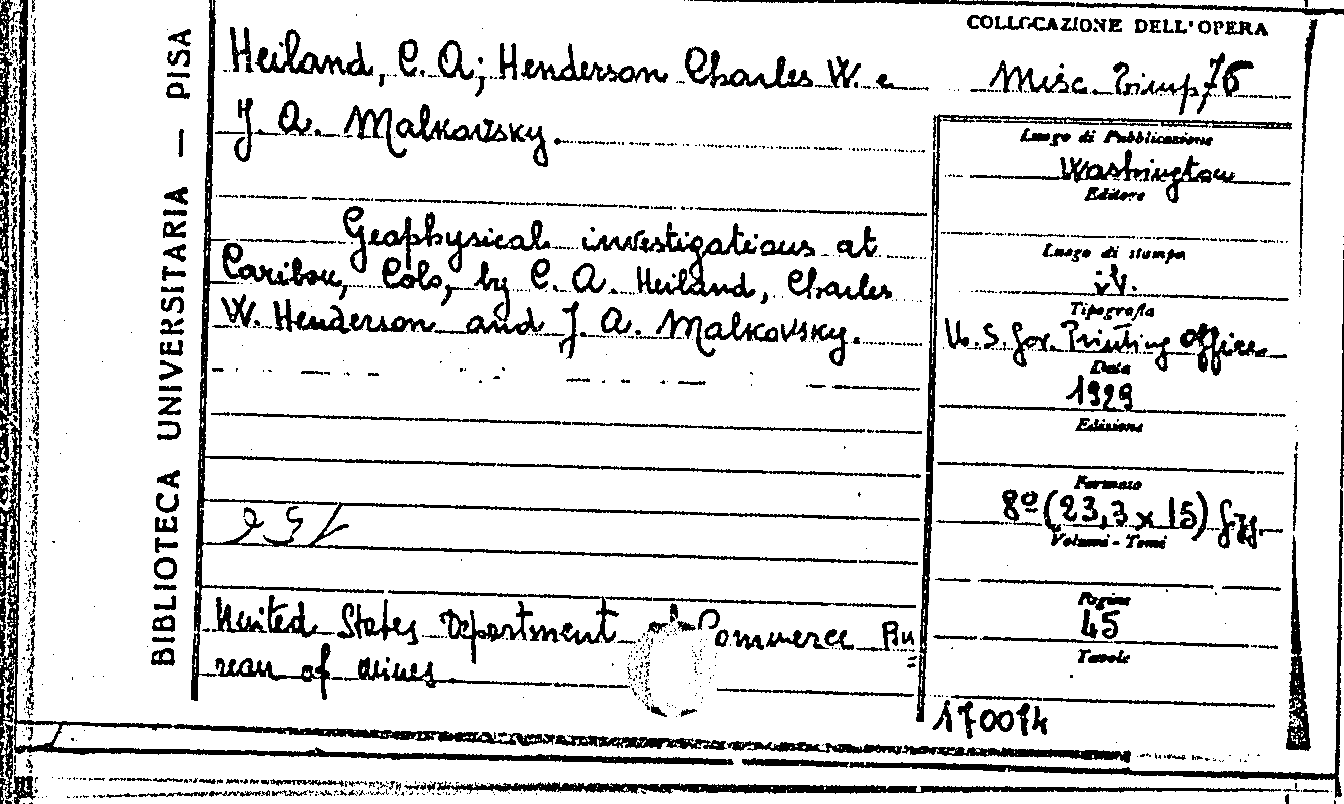 BIBLIOTECA UNIVERSITARIA — PISA
Heiland, C. A; Henderson Charles W. e
J. A. Malkovsky.
Geophysical investigations at
Caribou, Colo, by C. A. Heiland, Charles
W. Henderson and J. A. Malkovsky.
United States Department of Commerce Bu=
reau of Mines.
COLLOCAZIONE DELL'OPERA
Misc. 76
Luogo di Pubblicazione
Washington
Editore
Luogo di stampa
iv.
Tipografia
U. S. Gov. Printing Office
Data
1929
Edizione
Formato
8º (23,3 x 15)
Volumi - Tomi
Pagine
45
Tavole
170074